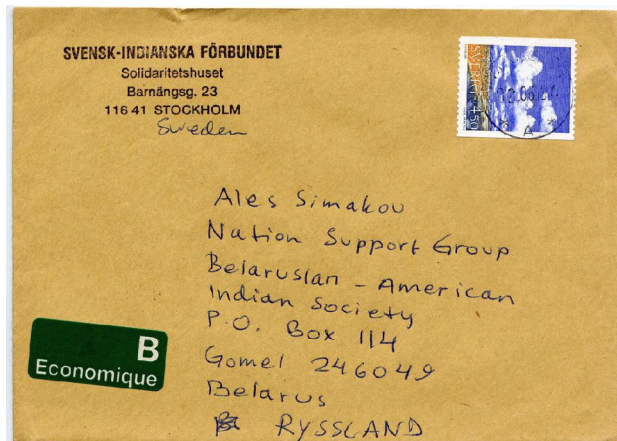 SVENSK-INDIANSKA FÖRBUNDET
Solidaritetshuset
Barnängsg. 23
116 41 STOCKHOLM
Sweden
SVERIGE 4.50
Ales Simakov
Nation Support Group
Belarusian - American
Indian Society
P.O. Box 114
Gomel 246049
Belarus
RYSSLAND
B
Economique